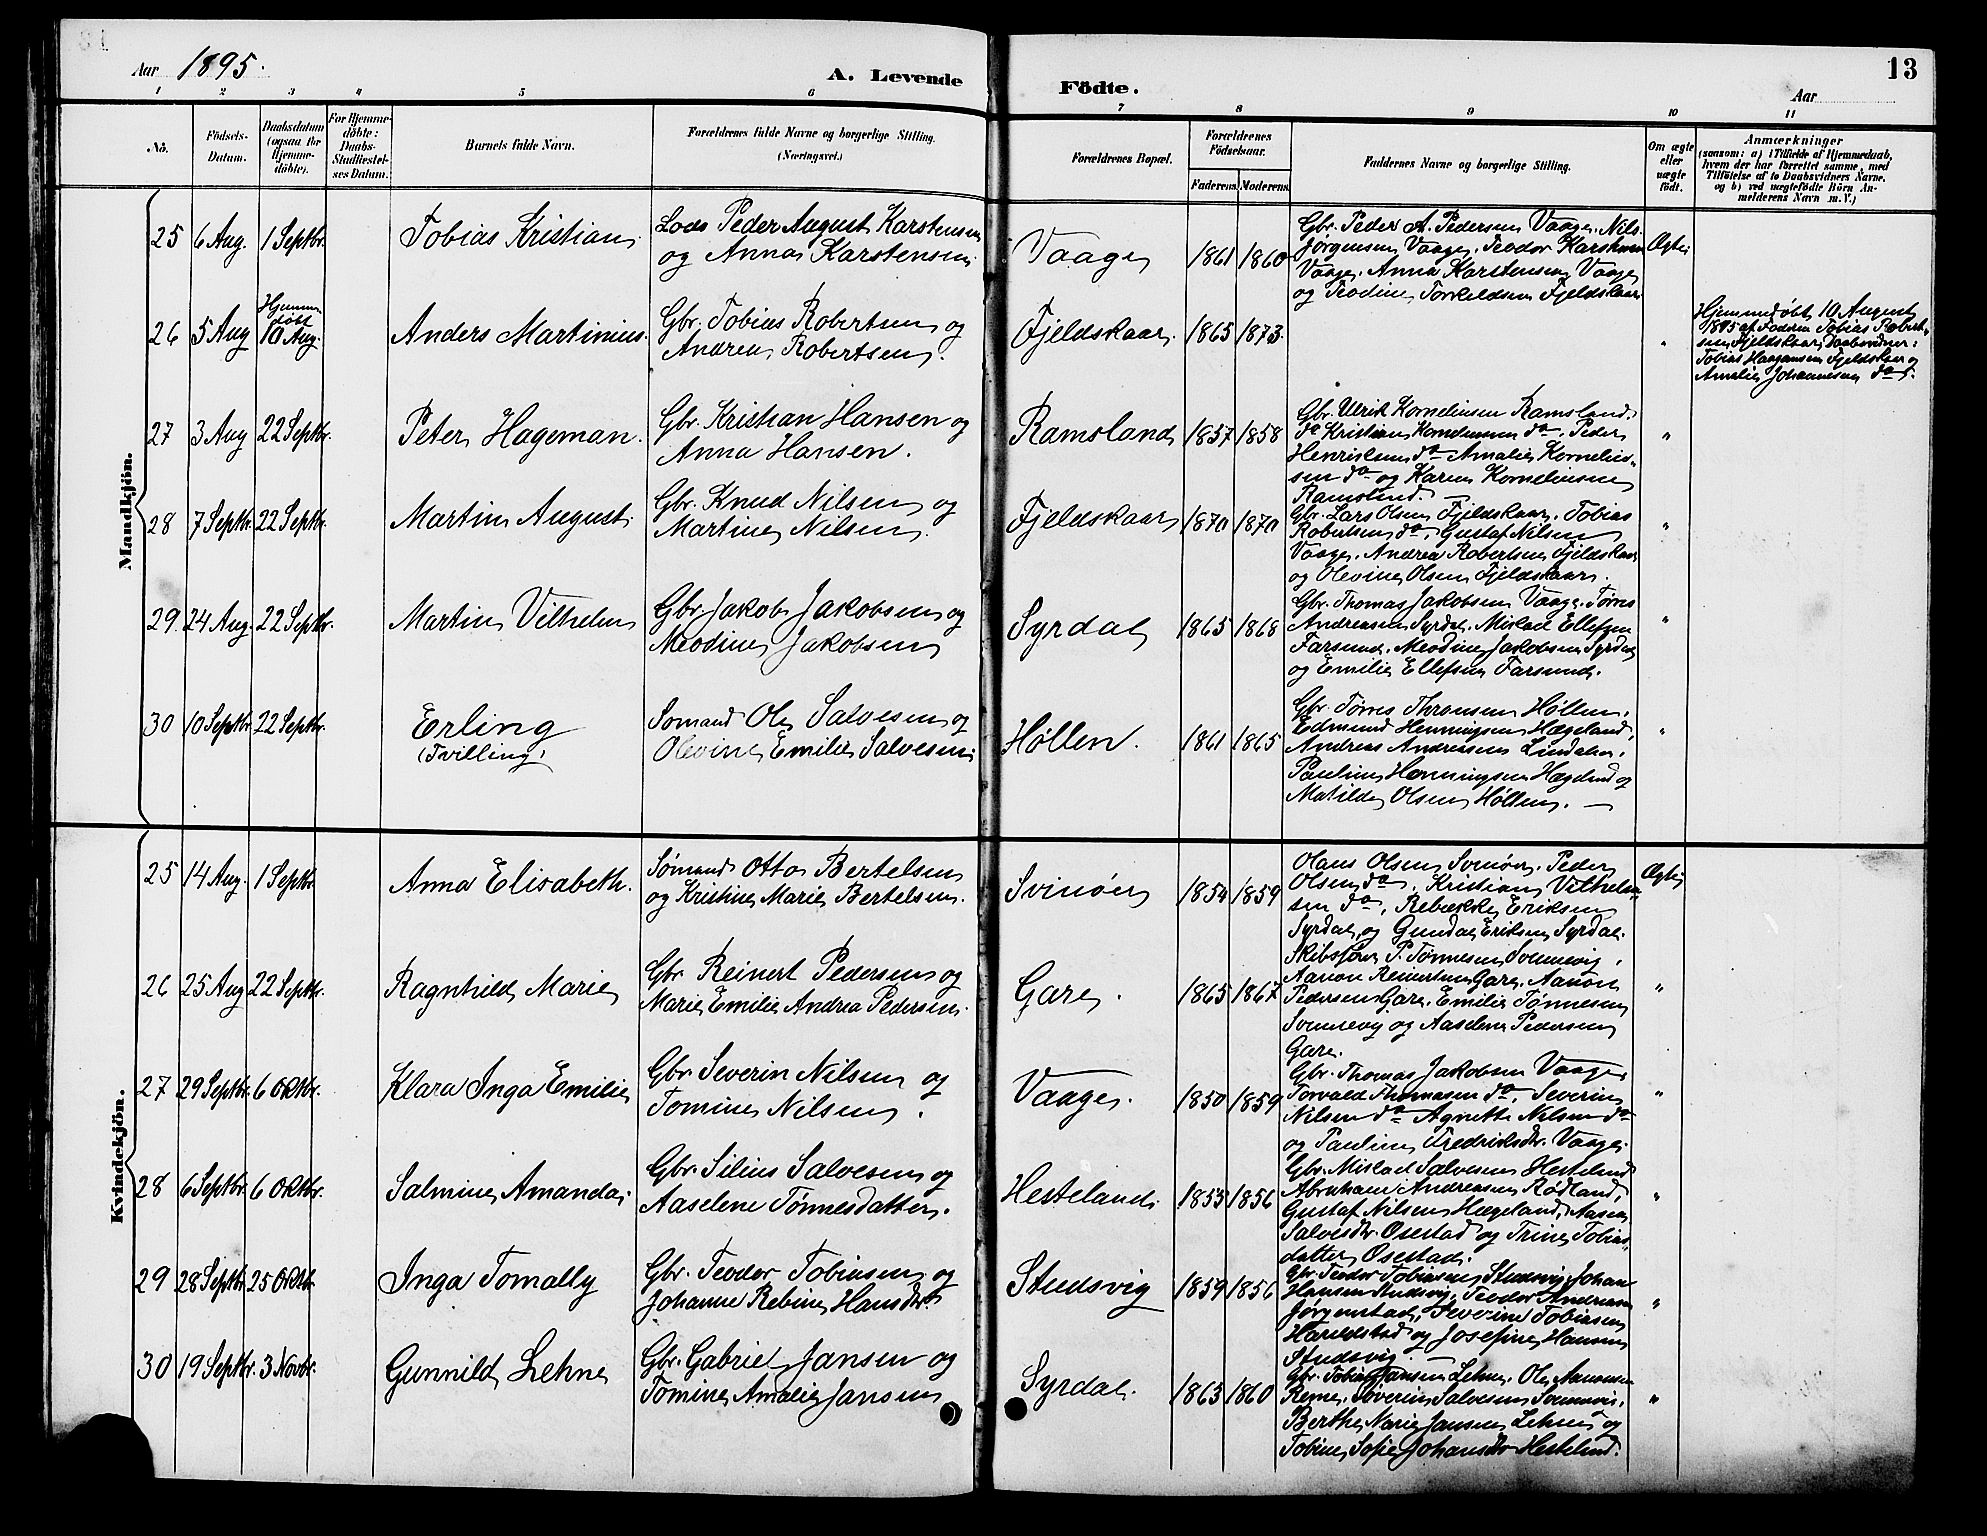 Aar 1895.
A. Levende
Födte.
13
Aar
1 2 3 4 5 6 7 8 9 10 11
No.
Födsels-
Datum.
Daabsdatum
(ogsaa for
Hjemme-
döbte).
For Hjemme-
döbte:
Daabs-
Stadfæstel-
ses Datum.
Barnets fulde Navn.
Forældrenes fulde Navne og borgerlige Stilling.
(Næringsvei.)
Forældrenes Bopæl.
Forældrenes
Födselsaar.
Faderens. Moderens.
Faddernes Navne og borgerlige Stilling.
Om ægte
eller
uægte
födt.
Anmærkninger
(saasom: a) i Tilfælde af Hjemmedaab,
hvem der har forrettet samme, med
Tilföielse af to Daabsvidners Navne,
og b) ved uægtefödte Börn An-
melderens Navn m. V.)
Mandkjön.
25 6 Aug. 1 Septbr. Tobias Kristian.
Lods Peder August Karstensen
og Anna Karstensen.
Vaage 1861 1860
Gbr. Peder A. Pedersen Vaage, Nils
Jørgensen Vaage, Teodor Karstensen
Vaage, Anna Karstensen Vaage
og Teodine Torkildsen Fjeldskaar
Ægte
26 5 Aug Hjemme
døbt
10 Aug. Anders Martinius.
Gbr. Tobias Robertsen og
Andrea Robertsen.
Fjeldskaar. 1865 1873. "
Hjemmedøbt 10 August
1895 af Faderen Tobias Robert-
sen Fjeldskaar, Daabsvidner:
Tobias Haagensen Fjeldskaar og
Amalie Johannesen do.
27 3 Aug 22 Septbr. Peter Hageman.
Gbr. Kristian Hansen og
Anna Hansen.
Ramsland 1857 1858
Gbr. Ulrik Kornelius­sen Ramsland.
do Kristian Korneliussen do, Peder
Henriksen do Amalie Kornelius-
sen do og Karen Korneliussen
Ramsland. "
28 7 Septbr. 22 Septbr. Martin August.
Gbr. Knud Nilsen og
Martine Nilsen.
Fjeldskaar 1870 1870
Gbr. Lars Olsen Fjeldskaar, Tobias
Robertsen do, Gustaf Nilsen
Vaage, Andrea Robertsen Fjeldskaar
og Olevine Olsen Fjeldskaar. "
29. 24 Aug. 22 Septbr. Martin Vilhelm
Gbr. Jakob Jakobsen og
Meodine Jakobsen
Syrdal 1865 1868
Gbr. Thomas Jakobsen Vaage, Tørres
Andreasen Syrdal, Mikael Ellefsen
Farsund, Meodine Jakobsen Syrdal
og Emilie Ellefsen Farsund. "
30 10 Septbr. 22 Septbr. Erling
(Tvilling)
Sømand Ole Salvesen og
Olevine Emilie Salvesen.
Høllen. 1861 1865
Gbr. Tørres Thronsen Høllen,
Edmund Henningsen Hægeland,
Andreas Andreasen Lindalen,
Pauline Henningsen Hægeland og
Matilde Olsen Høllen. "
Kvindekjön.
25 14 Aug. 1 Septbr. Anna Elisabeth.
Sømand Otto Bertelsen
og Kristine Marie Bertelsen.
Svinøer 1854 1859
Olaus Olsen Svinøer, Peder
Olsen do, Kristian Vilhelm-
sen do, Rebekke Eriksen
Syrdal og Gunda Eriksen Syrdal.
Ægte
26 25 Aug 22 Septbr. Ragnhild Marie
Gbr Reinert Pedersen og
Marie Emilie Andrea Pedersen.
Gare. 1865 1867
Skibsfører P. Tønnesen Svennevig,
Aanon Reinertsen Gare, Aanon
Pedersen Gare, Emilie Tønnesen
Svennevig og Aaselene Pedersen
Gare. "
27 29 Septbr. 6 Oktbr. Klara Inga Emilie
Gbr. Severin Nilsen og
Tomine Nilsen.
Vaage. 1850 1859
Gbr. Thomas Jakobsen Vaage.
Torvald Thomasen do, Severin
Nilsen do Agnette Nilsen do
og Pauline Fredriksdtr. Vaage. "
28 6 Septbr. 6 Oktbr. Salmine Amanda.
Gbr. Silius Salvesen og
Aaselene Tønnesdatter.
Hesteland. 1853 1856
Gbr. Mikael Salvesen Hesteland
Abraham Andreasen Rødland,
Gustaf Nilsen Hægeland, Aasen
Salvesdtr. Osestad og Trine Tobias-
datter Osestad. "
29 28 Septbr. 25 Oktbr. Inga Tomally
Gbr. Teodor Tobiasen og
Johanne Rebine Hansdtr.
Studsvig 1859 1856
Gbr Teodor Tobiasen Studsvig, Johan
Hansen Studsvig, Teodor Andreasen
Jørgenstad, Severine Tobiasen
Hareldstad og Josefine Hansen
Studsvig. "
30 19 Septbr. 3 Novbr. Gunnild Lehne
Gbr. Gabriel Jansen og
Tomine Amalie Jansen
Syrdal. 1863 1860
Gbr. Tobias Jansen Lehne, Ole Aanonsen
Reme, Severin Salvesen Svennevig,
Berthe Marie Jansen Lehne og
Tobine Sofie Johansdtr Hesteland. "